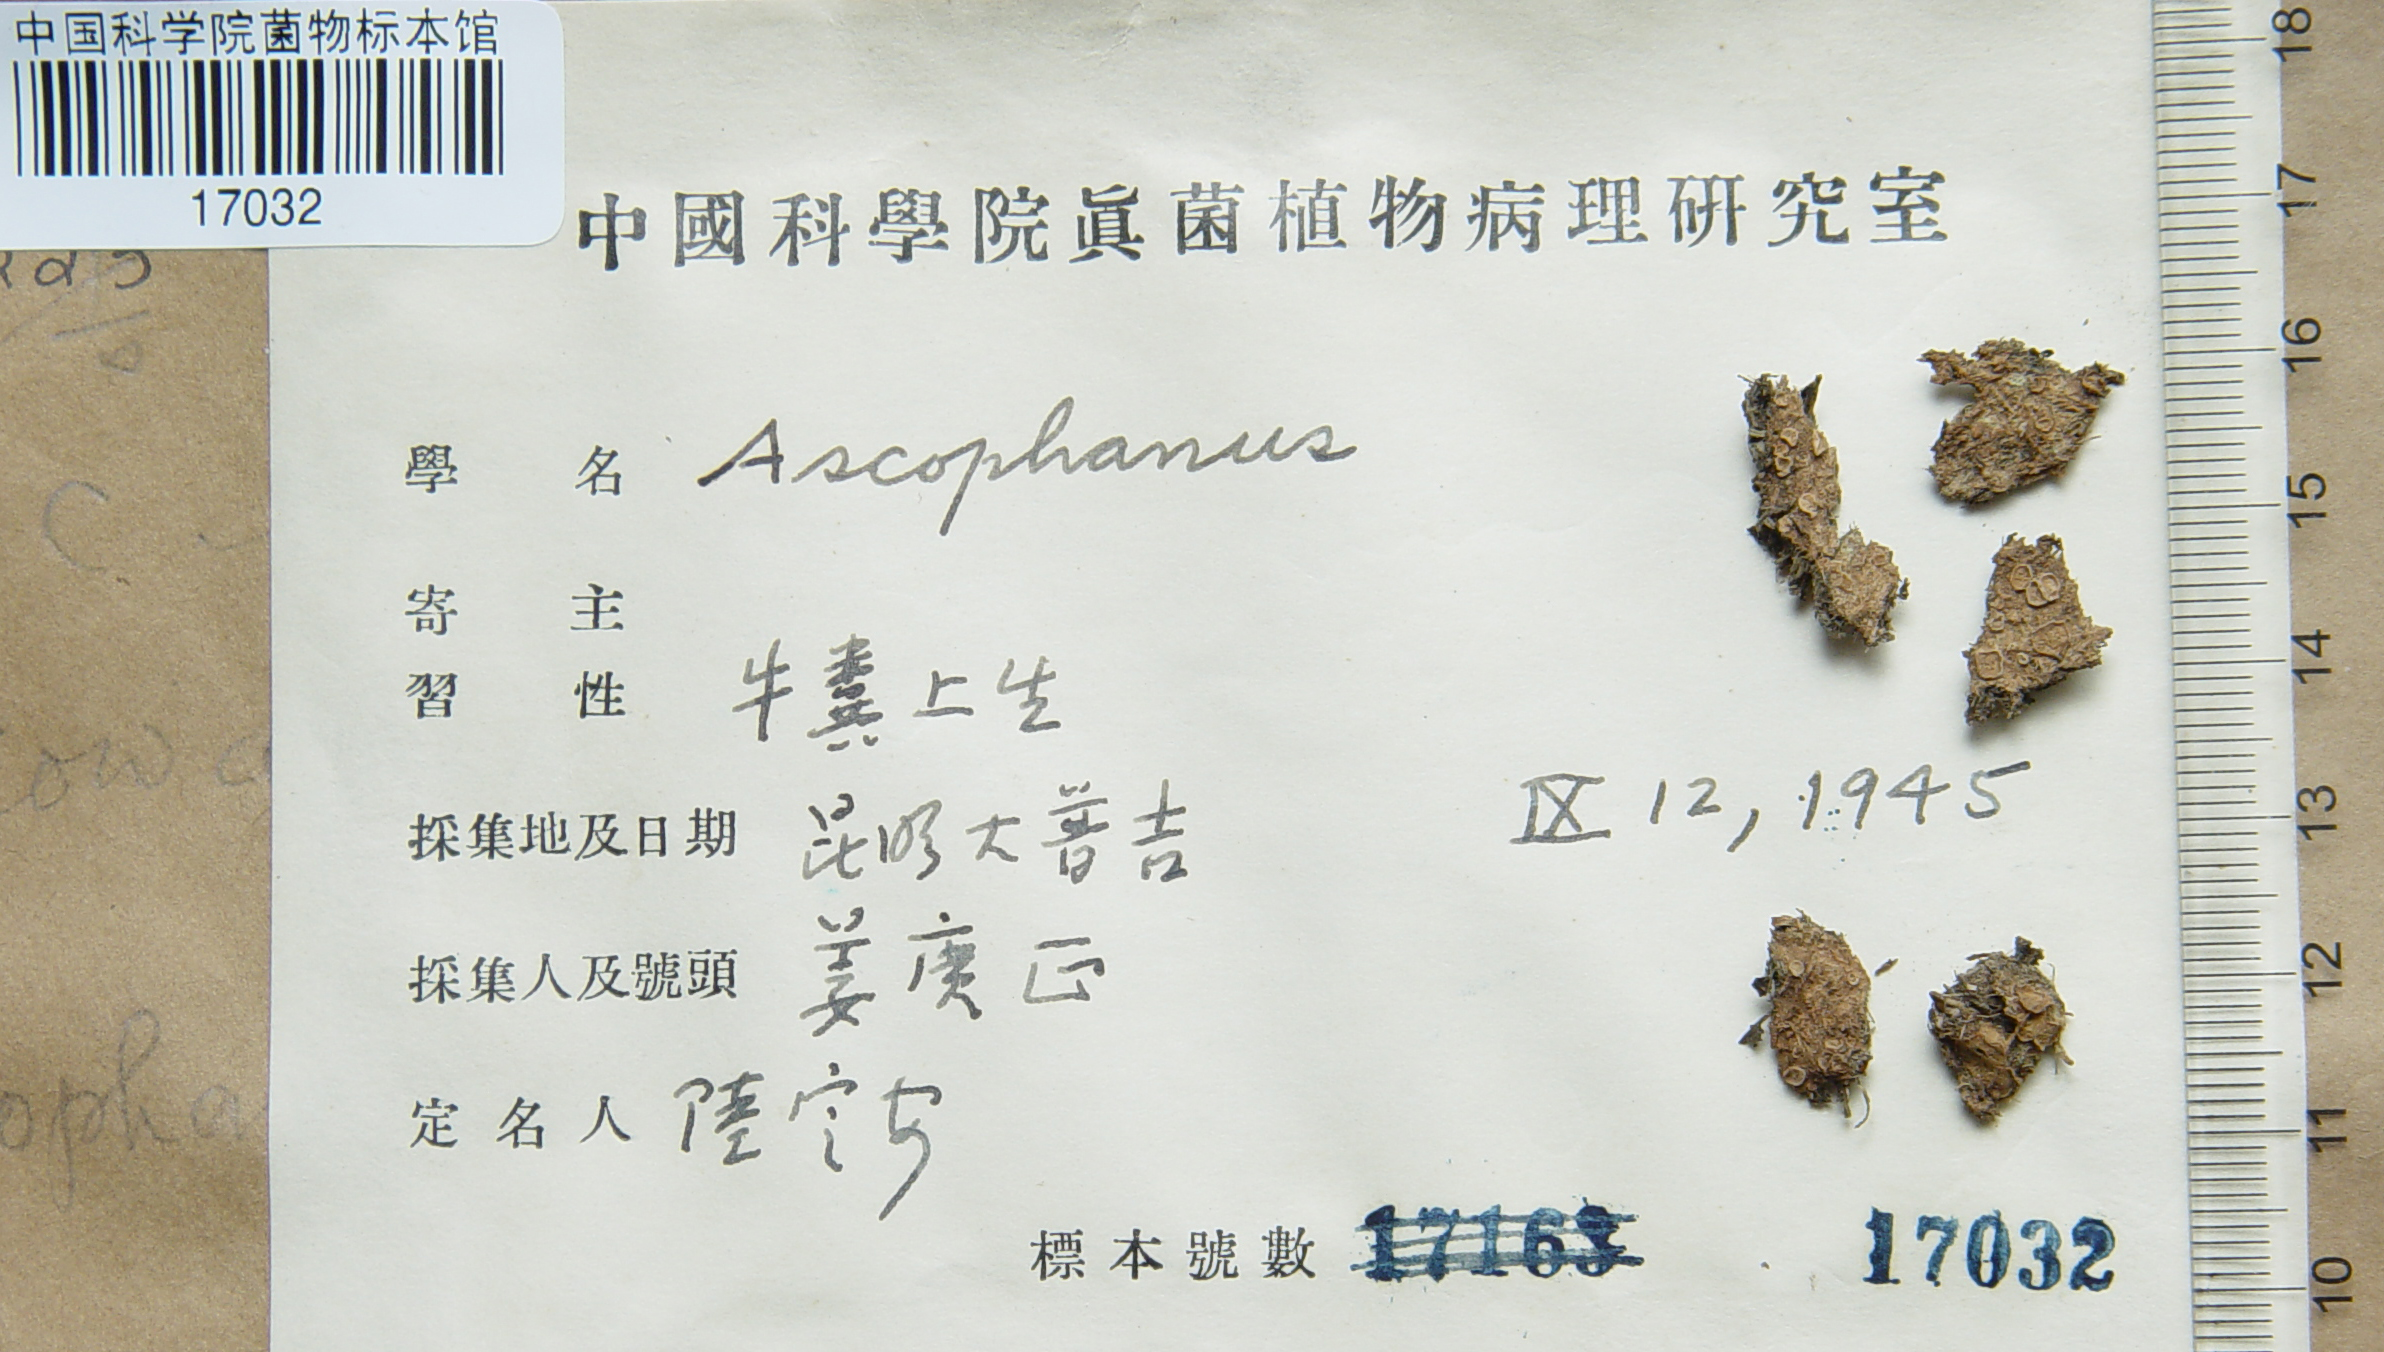 中国科学院菌物标本馆
17032
中國科學院眞菌植物病理研究室
學名 Ascophanus
寄主
習性 牛糞上生
採集地及日期 昆明大普吉 IX 12, 1945
採集人及號頭 姜庚正
定名人 陸定安
標本號數 17163 17032
C
cow
opha
18
17
16
15
14
13
12
11
10